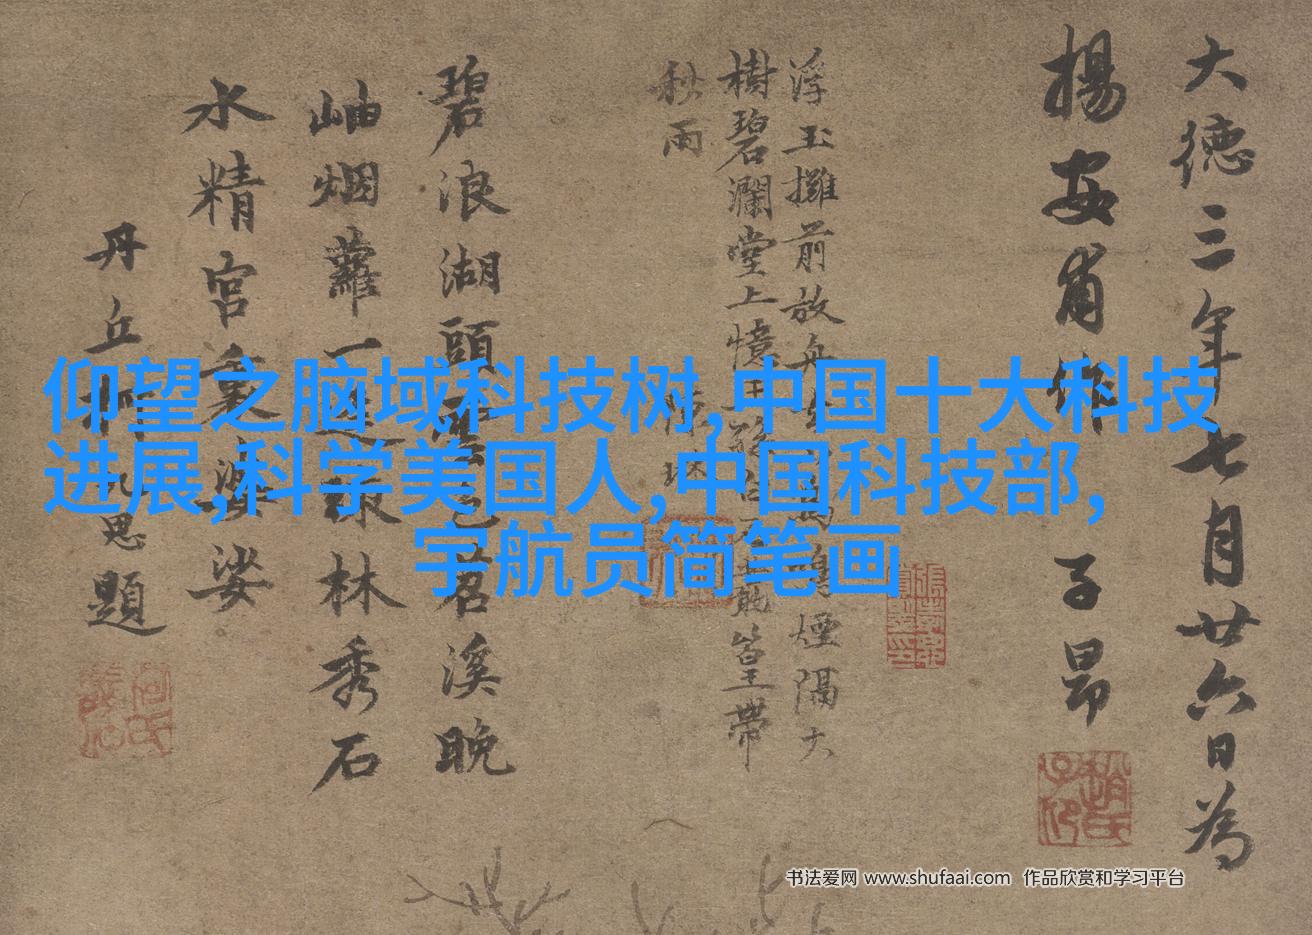 大德三年七月廿六日為
揚安甫作 子昂
浮玉攤前放舟 煙隔大
樹碧瀾堂上憶王孫 篁帶
秋雨
碧浪湖頭 色苕溪晚
岫烟蘿一 林秀石
水精宮裏 娑
丹丘柯九思題
仰望之脑域科技树,中国十大科技
进展,科学美国人,中国科技部,
宇航员简笔画
书法爱网 www.shufaai.com 作品欣赏和学习平台